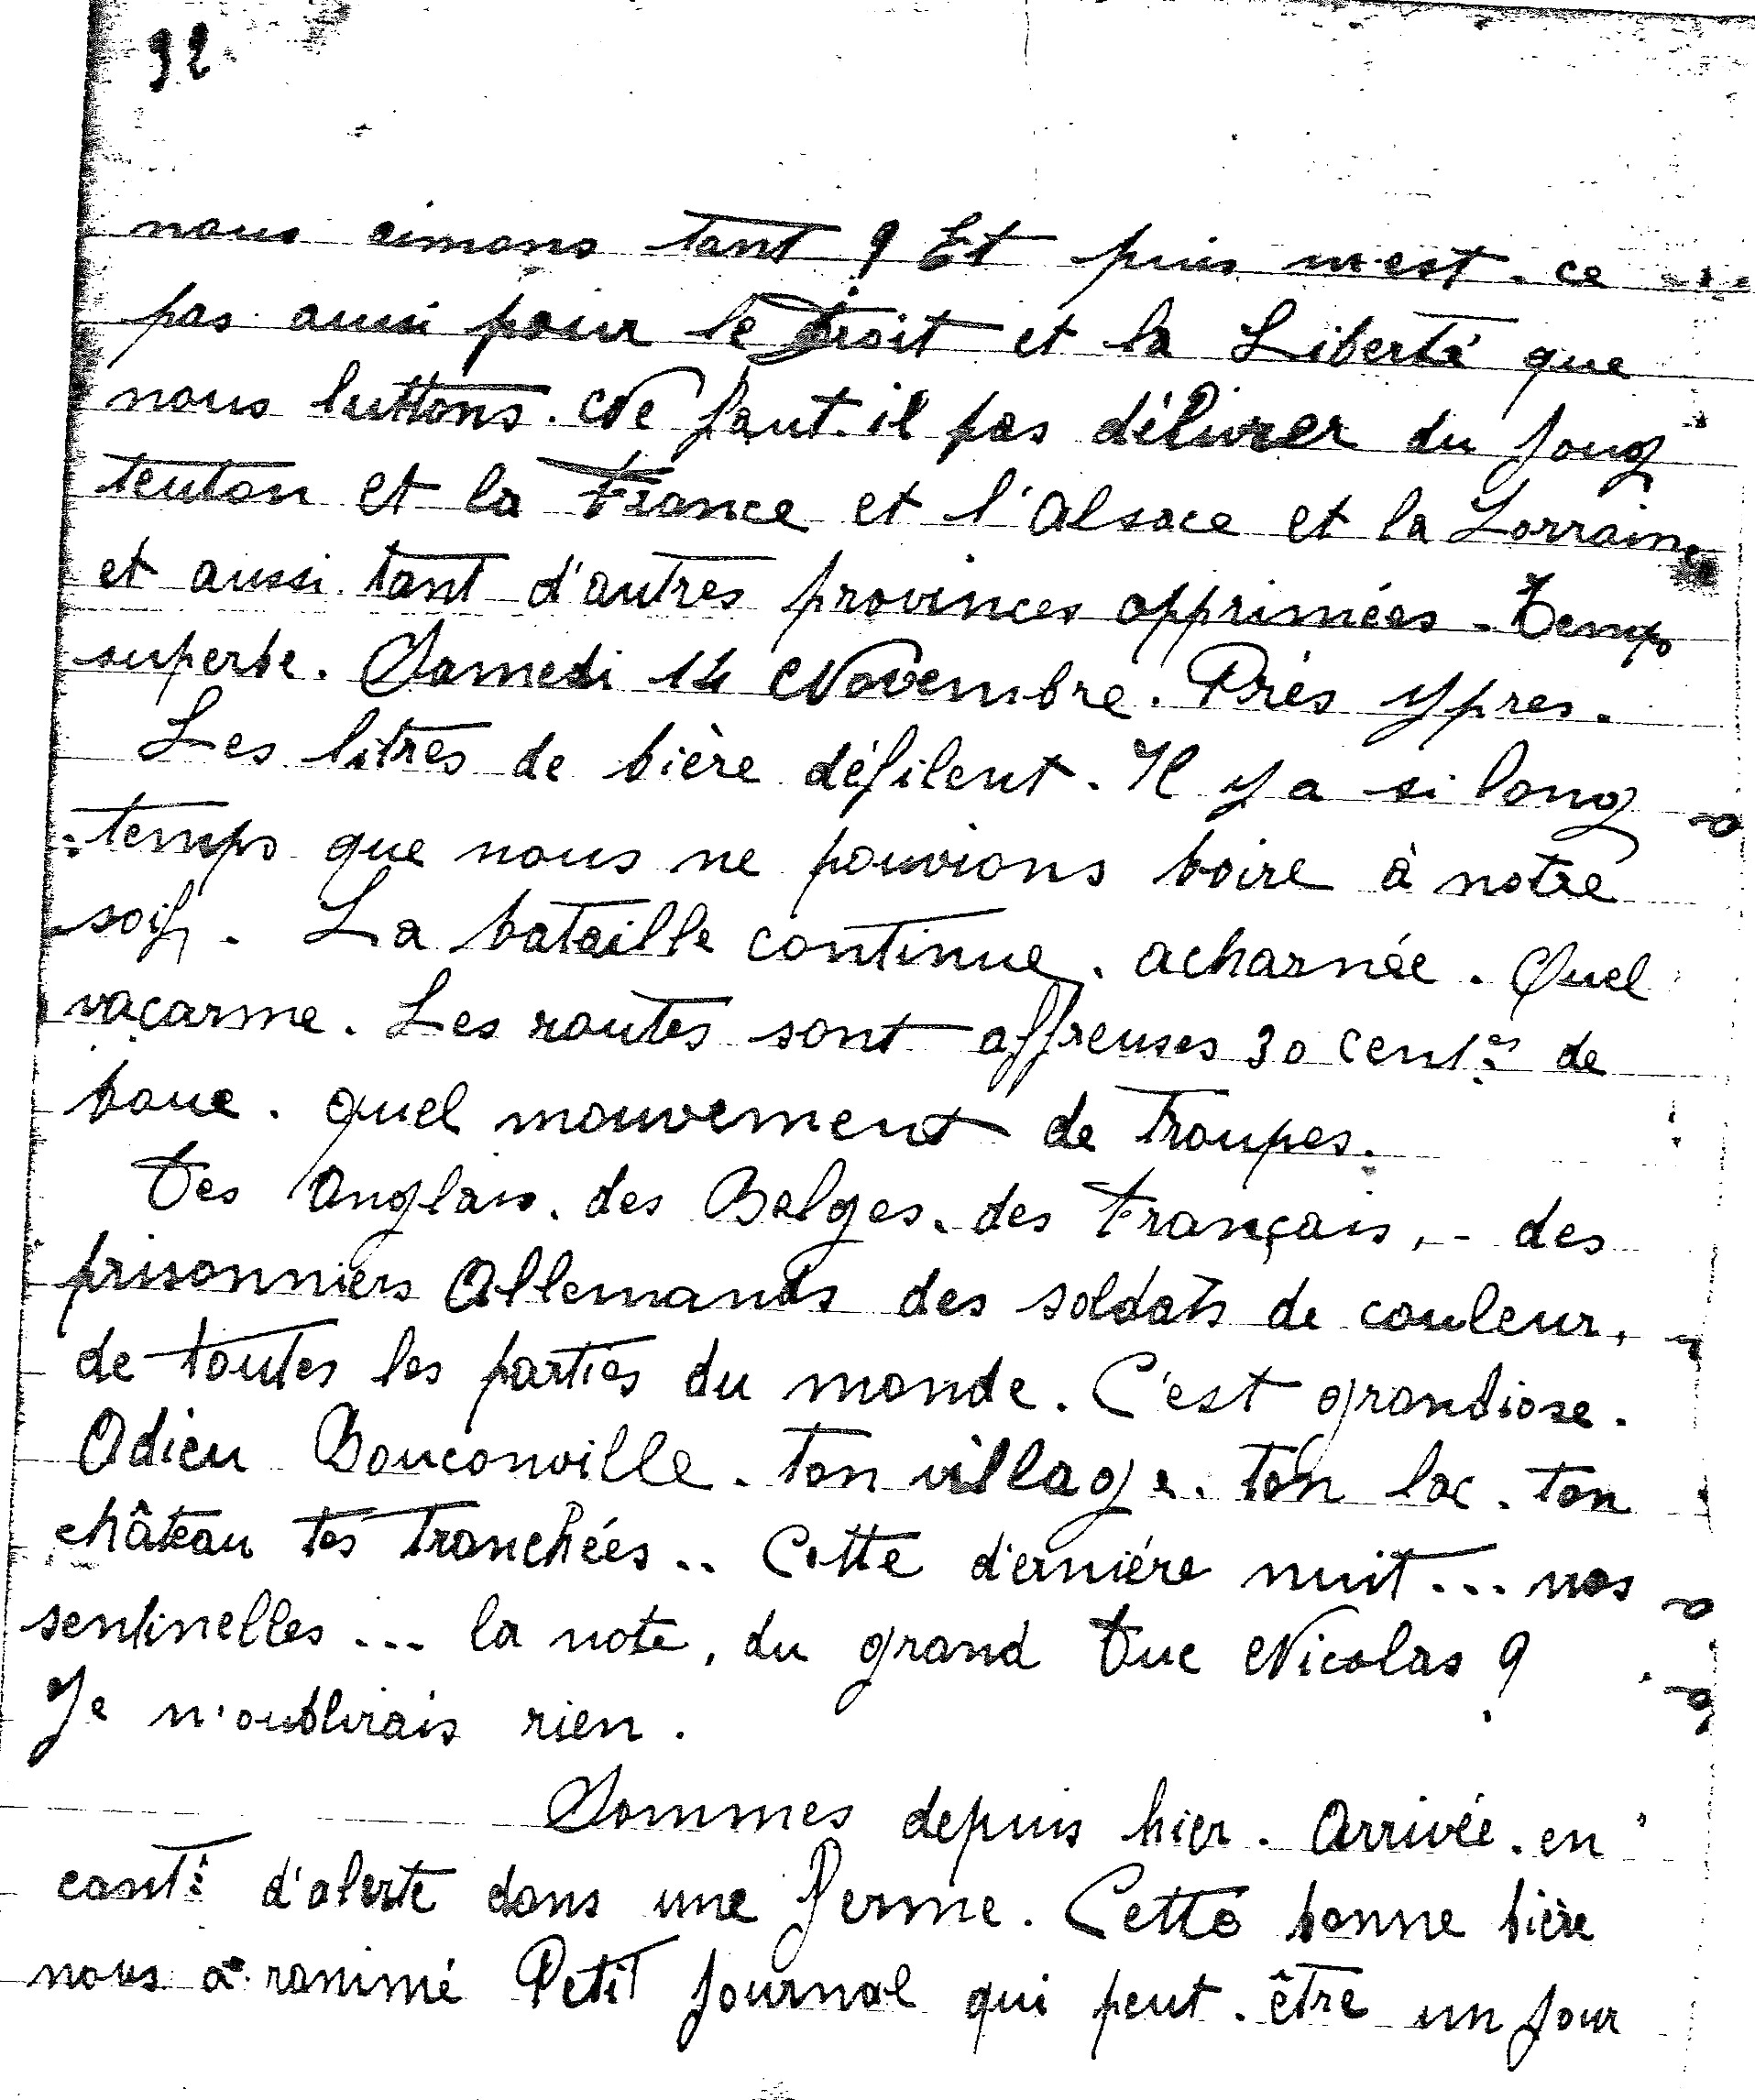 92
nous aimons tant ? Et puis n'est-ce
pas aussi pour le Droit et la Liberté que
nous luttons. Ne faut-il pas délivrer du joug
teuton et la France et l'Alsace et la Lorraine
et aussi tant d'autres provinces opprimées. Temps
superbe. Samedi 14 Novembre. Près Ypres.
Les litres de bière défilent. Il y a si long
temps que nous ne pouvions boire à notre
soif. La bataille continue. acharnée. Quel
vaçarme. Les routes sont affreuses 30 cent.es de
boue. quel mouvement de troupes.
Des Anglais. des Belges. des Français, - des
prisonniers Allemands des soldats de couleur,
de toutes les parties du monde. C'est grandiose.
Adieu Bouconville. ton village. ton lac. ton
château tes tranchées.. Cette dernière nuit... nos
sentinelles... la note, du grand Duc Nicolas ?
Je n'oublirais rien.
Sommes depuis hier. Arrivée. en
cant.t d'alerte dans une ferme. Cette bonne bière
nous a ranimé Petit journal qui peut-être un jour